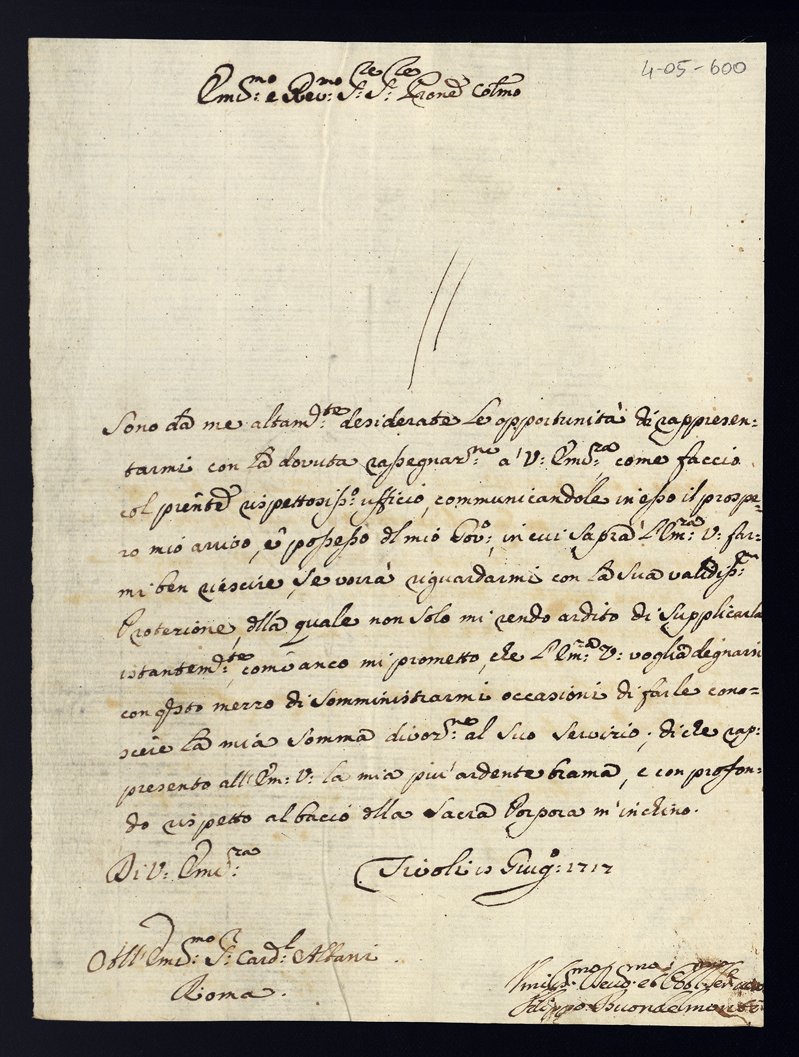 4-05-600
Em:mo e Rev:mo S:re S:re Prone Colmo
Sono da me altam:te desiderate le opportunità di rappresen=
tarmi con la dovuta rassegnar:ne a' V: Em:za come faccio
col pnte rispettosiss:o ufficio, communicandole in esso il prospe=
ro mio arrivo, e possesso del mio Gov:o, in cui saprà l'Em:za V: far=
mi ben riescire, se vorrà riguardarmi con la sua validiss:ma
Protezione, dlla quale non solo mi rendo ardito di supplicarla
istantem:te, com'anco mi prometto, che l'Em:za V: voglia degnarsi
con qsto mezzo di somministrarmi occasioni di farle cono=
scere la mia somma divoz:ne al suo servizio; di che rap=
presento all'Em: V: la mia più ardente brama, e con profon=
do rispetto al bacio dlla Sacra Porpora m'inchino.
Di V: Em:za
Tivoli 15 Giug:o 1717
All' Em:mo S:r Card:l Albani
Roma.
Umil:mo Dev:mo et Obl:mo Ser:re
Filippo Buondelmonti